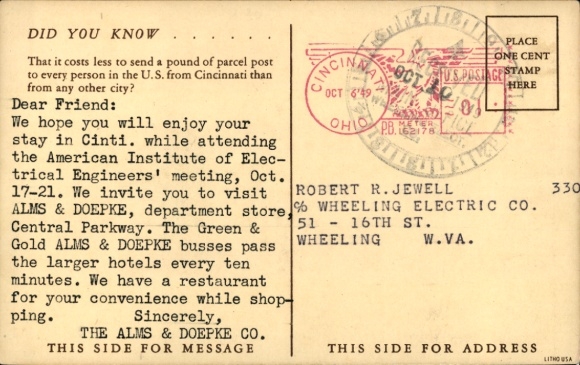 DID YOU KNOW . . . . . .
That it costs less to send a pound of parcel post
to every person in the U.S. from Cincinnati than
from any other city?
Dear Friend:
We hope you will enjoy your
stay in Cinti. while attending
the American Institute of Elec-
trical Engineers' meeting, Oct.
17-21. We invite you to visit
ALMS & DOEPKE, department store,
Central Parkway. The Green &
Gold ALMS & DOEPKE busses pass
the larger hotels every ten
minutes. We have a restaurant
for your convenience while shop-
ping. Sincerely,
THE ALMS & DOEPKE CO.
THIS SIDE FOR MESSAGE
CINCINNATI
OCT 6'49
OHIO
OCT 10
U.S. POSTAGE
P.B. METER
162178
PLACE
ONE CENT
STAMP
HERE
ROBERT R. JEWELL 330
% WHEELING ELECTRIC CO.
51 - 16TH ST.
WHEELING W.VA.
THIS SIDE FOR ADDRESS
LITHO USA